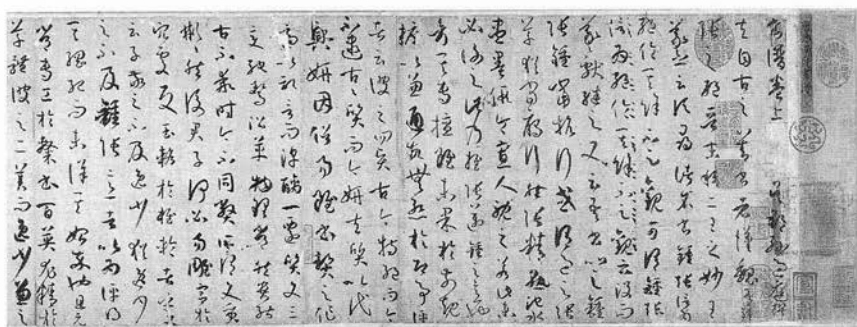 書譜卷上 吳郡孫過庭撰
夫自古之善書者漢魏有鍾
張之絕晉末稱二王之妙王
羲之云頃尋諸名書鍾張信為
絕倫其餘不足觀可謂鍾張
信為絕倫其餘不足觀云沒而
羲獻繼之又云吾書比之鍾
張鍾當抗行或謂過之張
草猶當鴈行然張精熟池水
盡墨假令寡人耽之若此未
必謝之此乃推張邁鍾之意也
考其專擅雖未果於前規
摭以兼通故無慚於即事評
者云彼之四賢古今特絕而今
不逮古古質而今妍夫質以代
興妍因俗易雖書契之作
適以記言而淳醨一遷質文三
變馳騖沿革物理常然貴能
古不乖時今不同弊所謂文質
彬彬然後君子何必易雕宮於
穴處反玉輅於椎輪者乎又
云子敬之不及逸少猶逸少
之不及鍾張意者以為評得
其綱紀而未詳其始卒也且元
常專工於隸書百英尤精於
草體彼之二美而逸少兼之